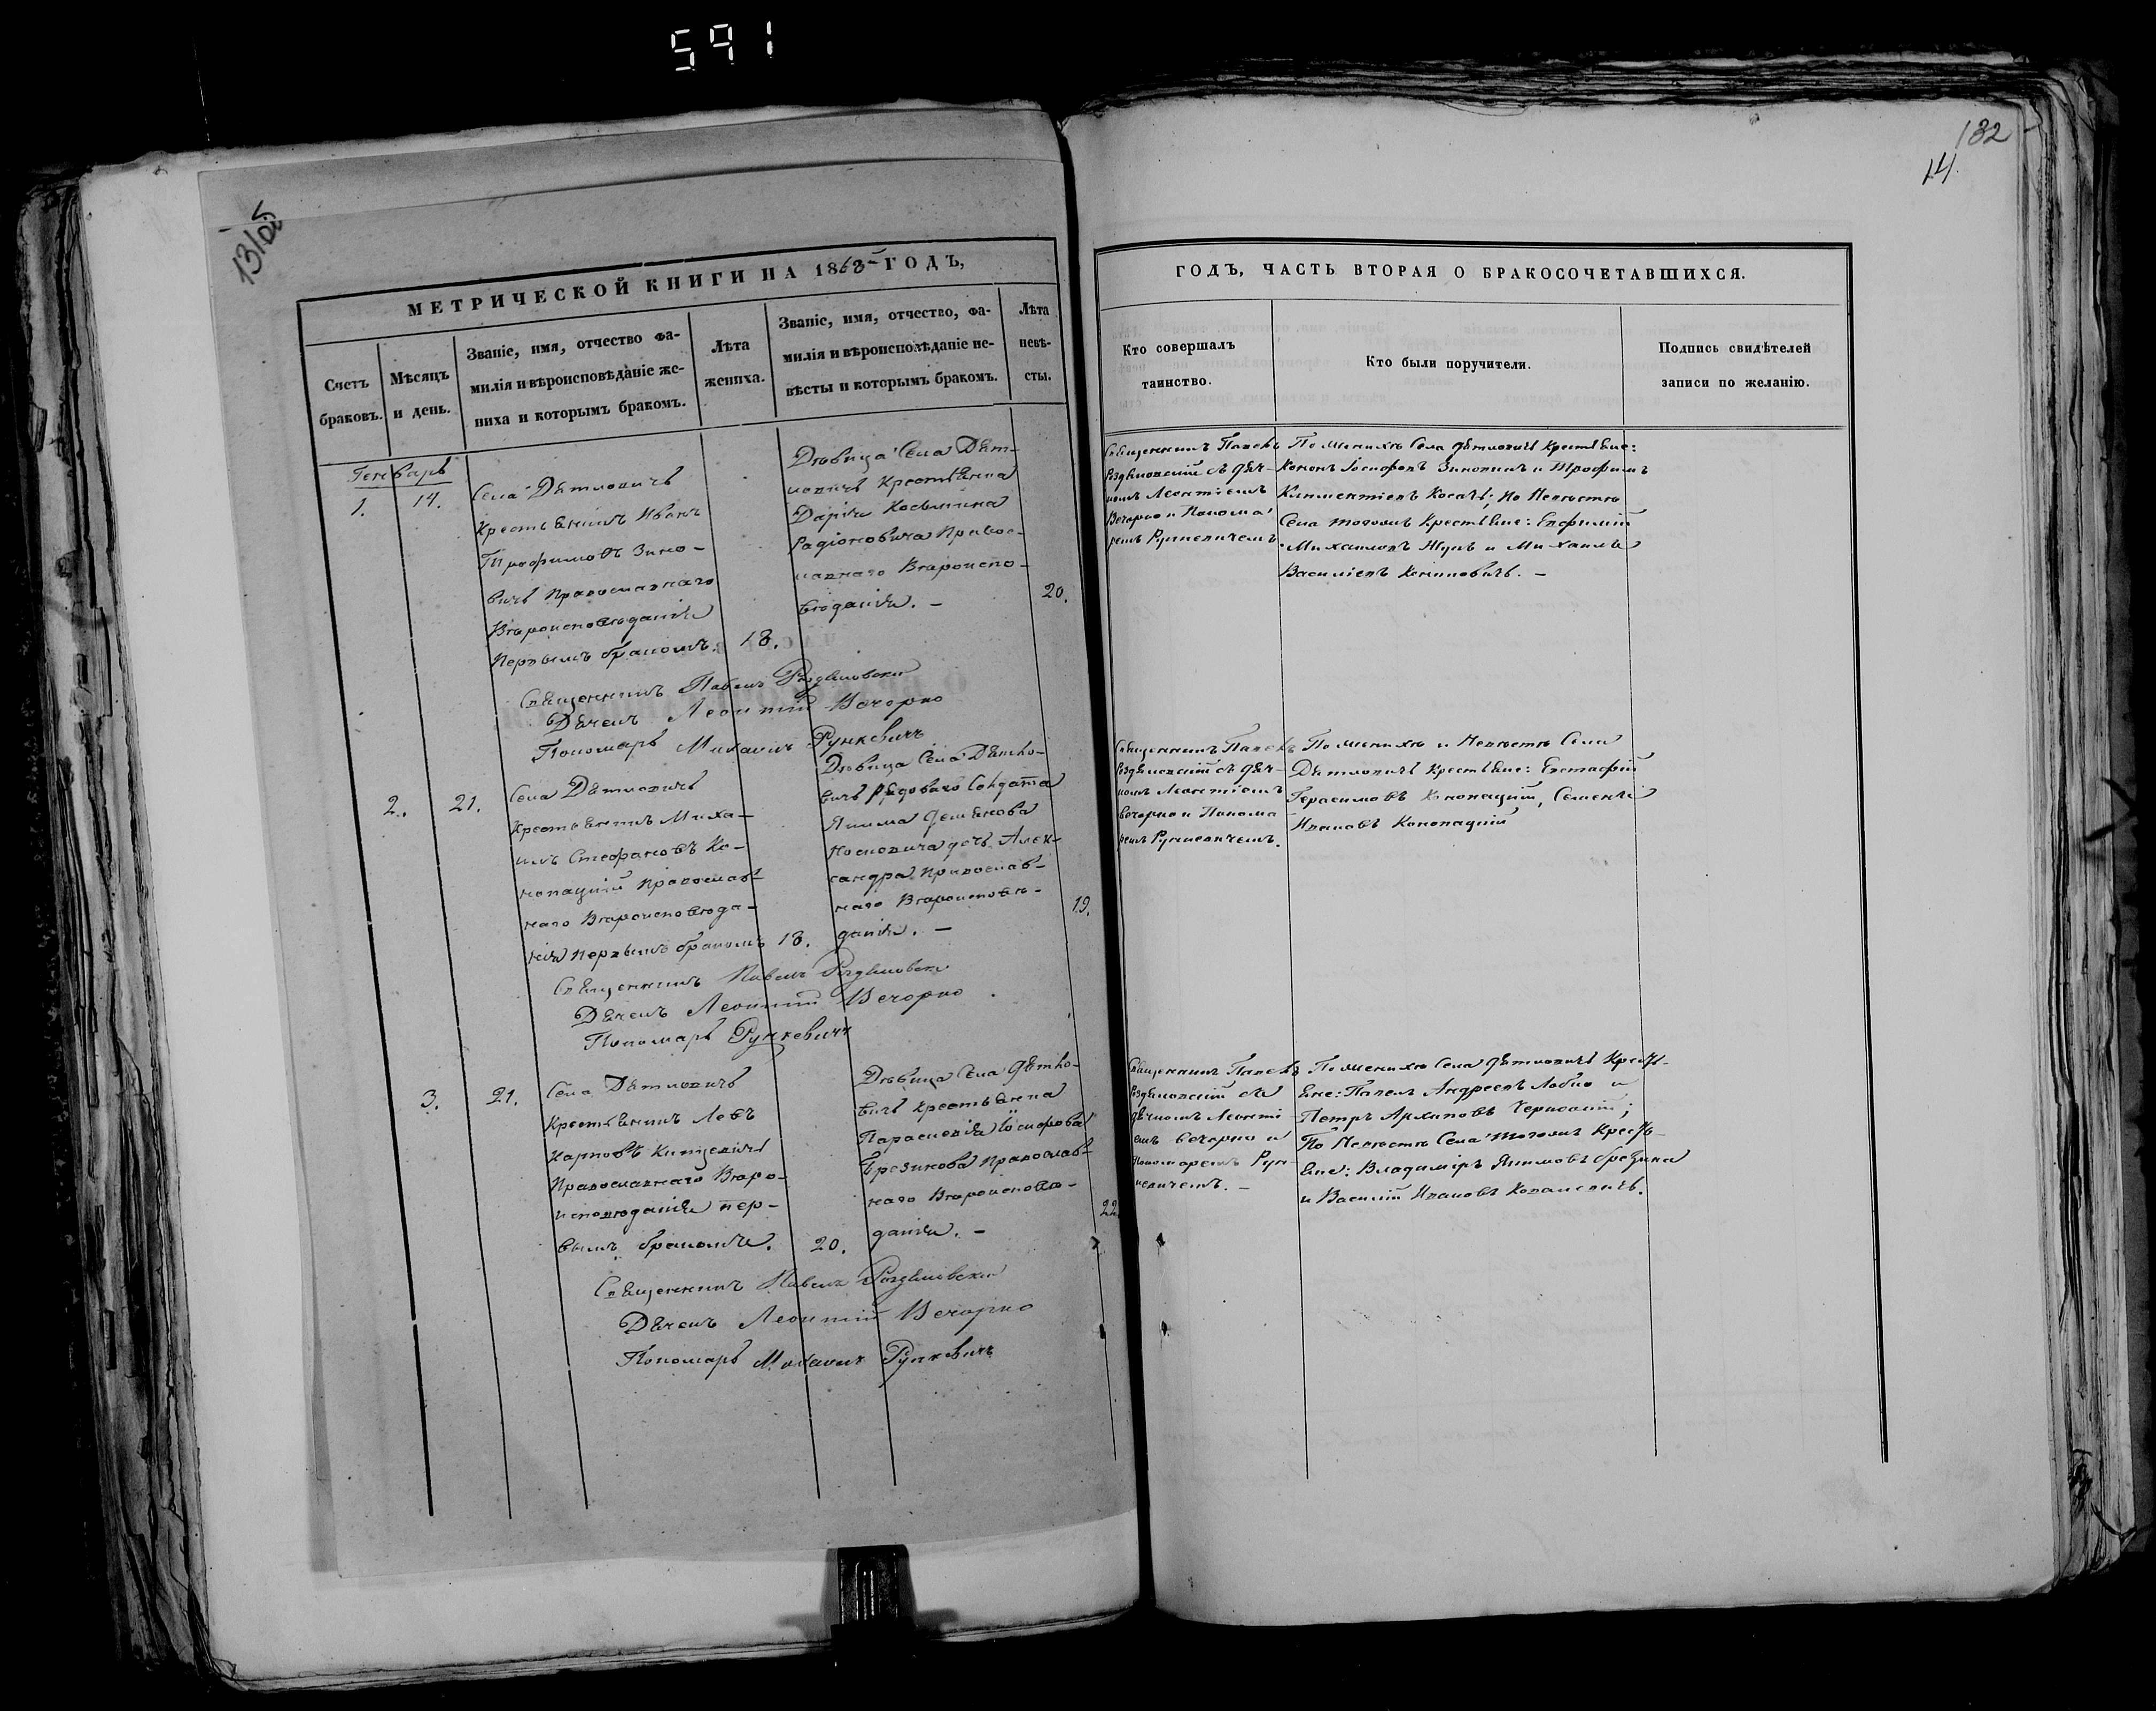 591
132
14.
МЕТРИЧЕСКОЙ КНИГИ НА 1863 ГОДЪ,
Счетъ
браковъ.
Мѣсяцъ
и день.
Званіе, имя, отчество фа-
милія и вѣроисповѣданіе же-
ниха и которымъ бракомъ.
Лѣта
жениха.
Званіе, имя, отчество, фа-
милія и вѣроисповѣданіе не-
вѣсты и которымъ бракомъ.
Лѣта
невѣ-
сты.
Генварь
1.
14.
Села Дѣтловичъ
Крестьянинъ Иванъ
Трофимовъ Зино-
вичъ Православнаго
Вѣроисповѣданія
первымъ бракомъ.
18.
Дѣвица Села Дѣт-
ловичъ Крестьянка
Дарія Косьмина
Радіоновича Правос-
лавнаго Вѣроиспо-
вѣданія. –
20.
Священникъ Павелъ
Дячекъ Леонтій Вечорко
Пономарь Михаилъ Рункевичъ
2.
21.
Села Дѣтловичъ
Крестьянинъ Миха-
илъ Стефановъ Ко-
нопацкій Православ-
наго Вѣроисповѣда-
нія первымъ бракомъ
18.
Дѣвица Села Дѣтло-
вичъ Рядоваго Солдата
Якима
дочь Алек-
сандра Православ-
наго Вѣроисповѣ-
данія. –
19.
Священникъ Павелъ
Дячекъ Леонтій Вечорко
Пономарь Рункевичъ
3.
21.
Села Дѣтловичъ
Крестьянинъ Левъ
Карповъ
Православнаго Вѣро-
исповѣданія пер-
вымъ бракомъ.
20.
Дѣвица Села Дѣтло-
вичъ Крестьянка
Параскевія
Православ-
наго Вѣроисповѣ-
данія. –
22.
Священникъ Павелъ
Дячекъ Леонтій Вечорко
Пономарь Михаилъ Рункевичъ
ГОДЪ, ЧАСТЬ ВТОРАЯ О БРАКОСОЧЕТАВШИХСЯ.
Кто совершалъ
таинство.
Кто были поручители.
Подпись свидѣтелей
записи по желанію.
Священникъ Павелъ
съ Дяч-
комъ Леонтіемъ
Вечорко и Понома-
ремъ Рункевичемъ.
По Женихѣ Села Дѣтловичъ Крестьяне:
Зиновичъ и Трофимъ
Климентіевъ Косачъ; По Невѣстѣ
Села тогожъ Крестьяне: Евфимій
Михаиловъ Жукъ и Михаилъ
Василіевъ –
Священникъ Павелъ
съ Дяч-
комъ Леонтіемъ
Вечорко и Понома-
ремъ Рункевичемъ.
По Женихѣ и Невѣстѣ Села
Дѣтловичъ Крестьяне: Евстафій
Герасимовъ Конопацкій, Семенъ
Ивановъ Конопацкій
Священникъ Павелъ
съ
Дячкомъ Леонті-
емъ Вечорко и
Пономаремъ Рун-
кевичемъ. –
По Женихѣ Села Дѣтловичъ Кресть-
яне: Павелъ Андреевъ Лобко и
Петръ Архиповъ
По Невѣстѣ Села тогожъ Кресть-
яне: Владиміръ Якимовъ Брезина
и Василій Ивановъ Ковалевичъ.